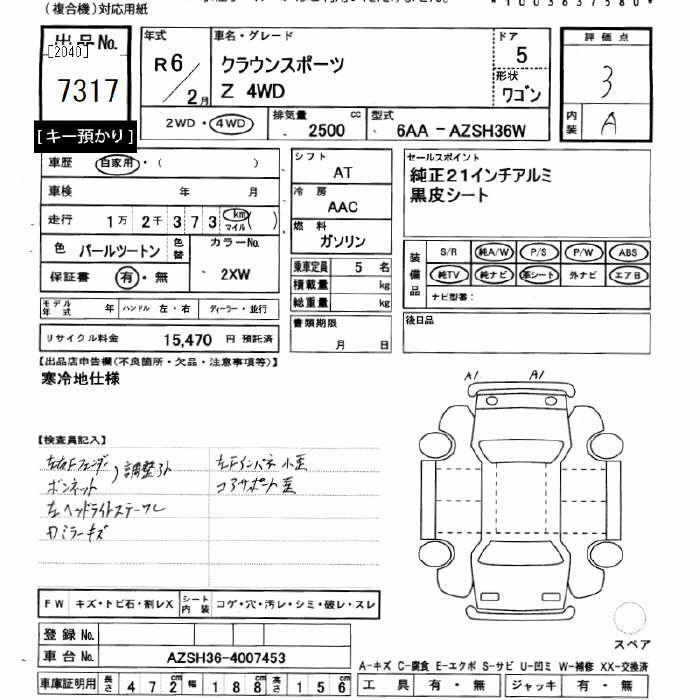 (複合機)対応用紙
*1003637580*
出品No.
[2040]
7317
[キー預かり]
年式
R6/2月
車名・グレード
クラウンスポーツ
Z 4WD
ドア
5
形状
ワゴン
評価点
3
内装
A
2WD・4WD
排気量 cc
2500
型式
6AA-AZSH36W
車歴 自家用・( )
車検 年 月
走行 1万 2千 3 7 3 km マイル ( )
色 パールツートン 色替
カラーNo.
2XW
保証書 有・無
モデル年式 年 ハンドル 左・右 ディーラー・並行
リサイクル料金 15,470 円 預託済
シフト
AT
冷房
AAC
燃料
ガソリン
乗車定員 5 名
積載量 kg
総重量 kg
書類期限
月 日
セールスポイント
純正21インチアルミ
黒皮シート
装備品
S/R 純A/W P/S P/W ABS
純TV 純ナビ 革シート 外ナビ エアB
ナビ型番:
後日品
【出品店申告欄(不良箇所・欠品・注意事項等)】
寒冷地仕様
A1 A1
【検査員記入】
左右Fフェンダー
ボンネット
調整跡
左ヘッドライトステーワレ
カミラーキズ
左Fインパネ小歪
コアサポート歪
FW キズ・トビ石・割レX シート内装 コゲ・穴・汚レ・シミ・破レ・スレ
登録No.
車台No. AZSH36-4007453
車庫証明用 長さ 472cm 幅 188cm 高さ 156cm
スペア
A-キズ C-腐食 E-エクボ S-サビ U-凹ミ W-補修 XX-交換済
工具 有・無 ジャッキ 有・無